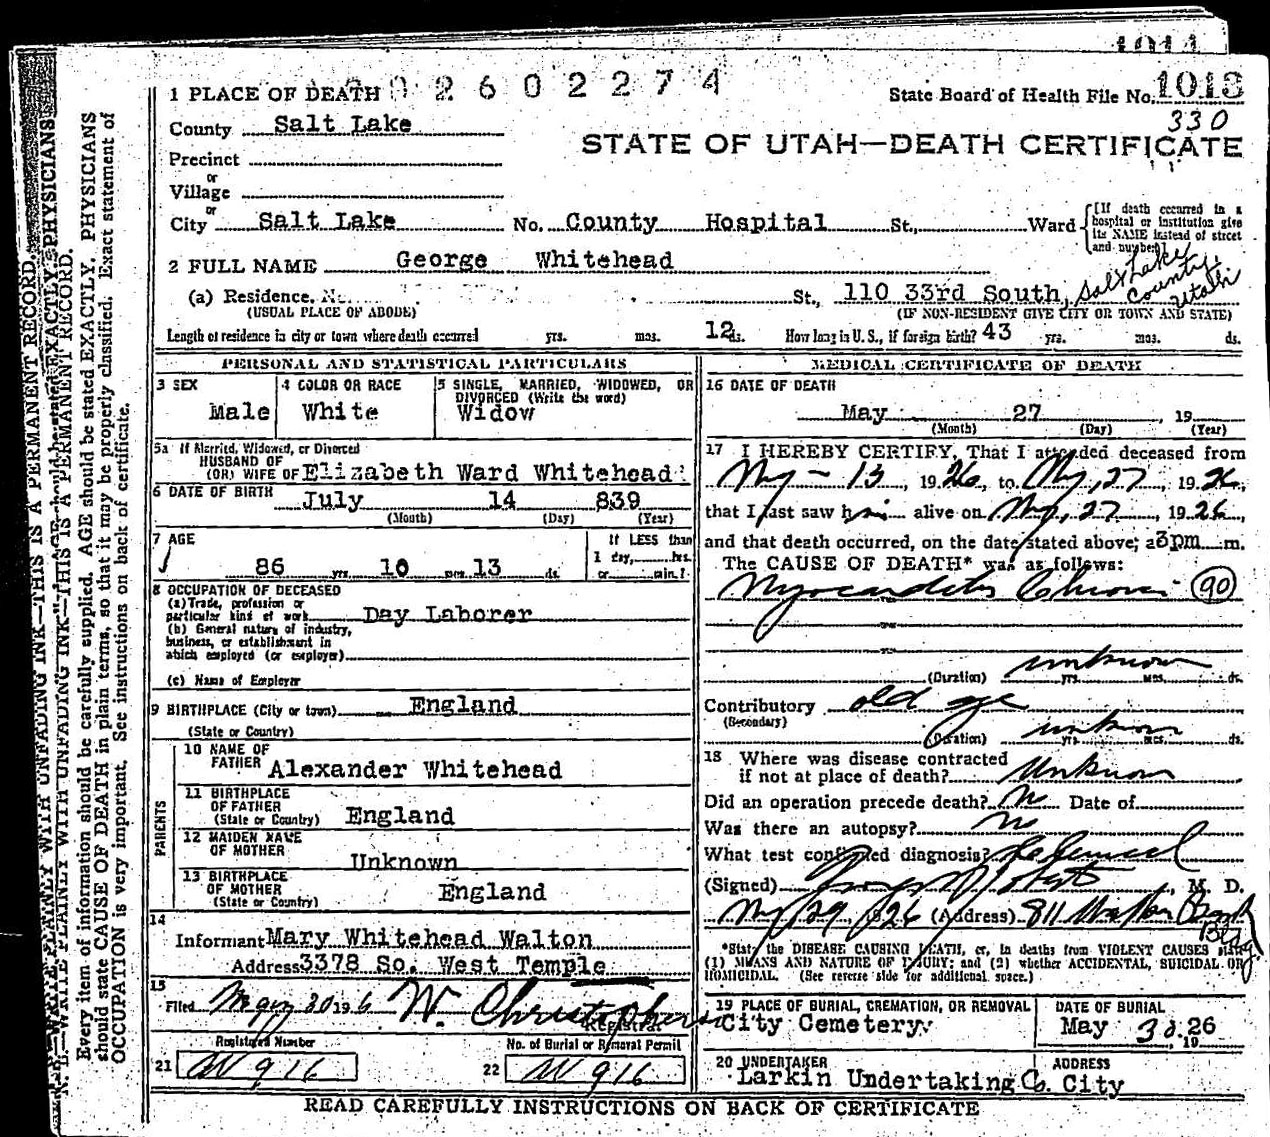 1014
1 PLACE OF DEATH 02602274
State Board of Health File No. 1013
330
County Salt Lake
STATE OF UTAH—DEATH CERTIFICATE
Precinct
or
Village
or
City Salt Lake No. County Hospital St., Ward
[If death occurred in a hospital or institution give its NAME instead of street and number]
2 FULL NAME George Whitehead
(a) Residence. No. St., 110 33rd South, Salt Lake County, Utah
(USUAL PLACE OF ABODE) (IF NON-RESIDENT GIVE CITY OR TOWN AND STATE)
Length of residence in city or town where death occurred yrs. mos. 12 ds. How long in U. S., if foreign birth? 43 yrs. mos. ds.
PERSONAL AND STATISTICAL PARTICULARS
3 SEX
Male
4 COLOR OR RACE
White
5 SINGLE, MARRIED, WIDOWED, OR DIVORCED (Write the word)
Widow
5a If Married, Widowed, or Divorced
HUSBAND OF
(OR) WIFE OF Elizabeth Ward Whitehead
6 DATE OF BIRTH July 14 839
(Month) (Day) (Year)
7 AGE
86 yrs. 10 mos. 13 ds.
If LESS than
1 day, hrs.
or min.?
8 OCCUPATION OF DECEASED
(a) Trade, profession or
particular kind of work Day Laborer
(b) General nature of industry,
business, or establishment in
which employed (or employer)
(c) Name of Employer
9 BIRTHPLACE (City or town) England
(State or Country)
PARENTS
10 NAME OF
FATHER Alexander Whitehead
11 BIRTHPLACE
OF FATHER
(State or Country) England
12 MAIDEN NAME
OF MOTHER
Unknown
13 BIRTHPLACE
OF MOTHER
(State or Country) England
14
Informant Mary Whitehead Walton
Address 3378 So. West Temple
15
Filed May 30 1926 W. Christopherson
Registrar
Registered Number
No. of Burial or Removal Permit
21 W 916
22 W 916
MEDICAL CERTIFICATE OF DEATH
16 DATE OF DEATH
May 27 19
(Month) (Day) (Year)
17 I HEREBY CERTIFY, That I attended deceased from
May - 13, 1926, to May, 27, 1926,
that I last saw him alive on May, 27, 1926,
and that death occurred, on the date stated above, at 3pm m.
The CAUSE OF DEATH* was as follows:
Myocarditis Chronic 90
(Duration) unknown yrs. mos. ds.
Contributory old age
(Secondary)
(Duration) unknown yrs. mos. ds.
18 Where was disease contracted
if not at place of death? Unknown
Did an operation precede death? No Date of
Was there an autopsy? No
What test confirmed diagnosis?
(Signed) , M. D.
May 29, 1926 (Address) 811 Walker Bank Bldg.
*State the DISEASE CAUSING DEATH, or, in deaths from VIOLENT CAUSES state
(1) MEANS AND NATURE OF INJURY; and (2) whether ACCIDENTAL, SUICIDAL OR
HOMICIDAL. (See reverse side for additional space.)
19 PLACE OF BURIAL, CREMATION, OR REMOVAL
City Cemetery
DATE OF BURIAL
May 30. 26
19
20 UNDERTAKER
Larkin Undertaking Co.
ADDRESS
City
READ CAREFULLY INSTRUCTIONS ON BACK OF CERTIFICATE
N. B.—WRITE PLAINLY WITH UNFADING INK—THIS IS A PERMANENT RECORD.
Every item of information should be carefully supplied. AGE should be stated EXACTLY. PHYSICIANS
should state CAUSE OF DEATH in plain terms, so that it may be properly classified. Exact statement of
OCCUPATION is very important. See instructions on back of certificate.